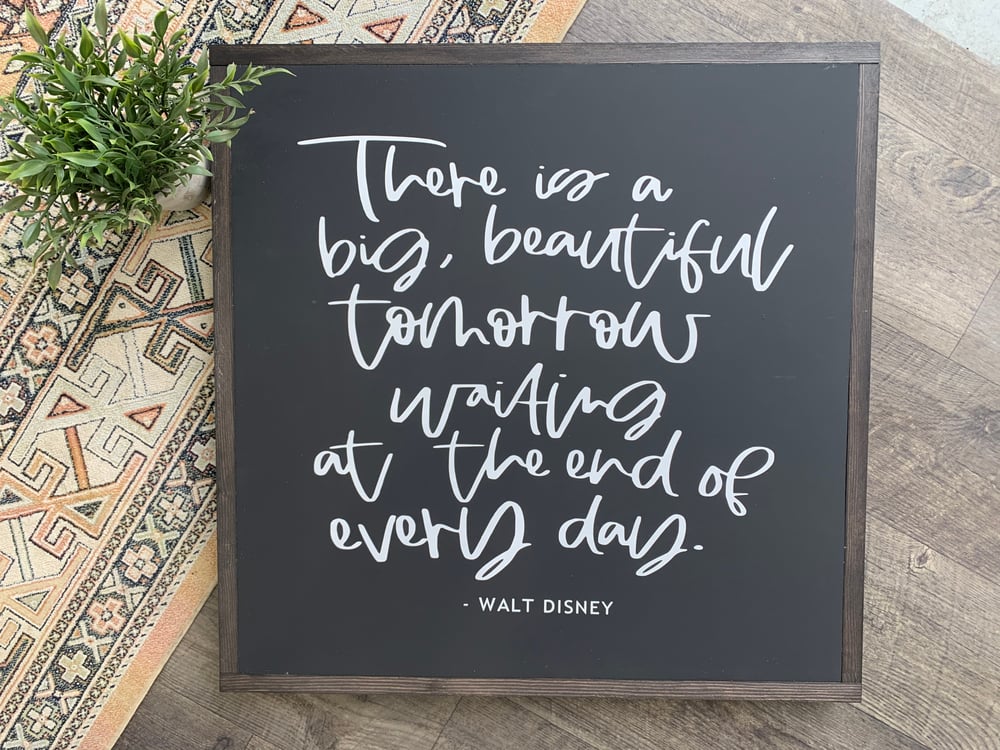 There is a
big, beautiful
tomorrow
waiting
at the end of
every day.
- WALT DISNEY